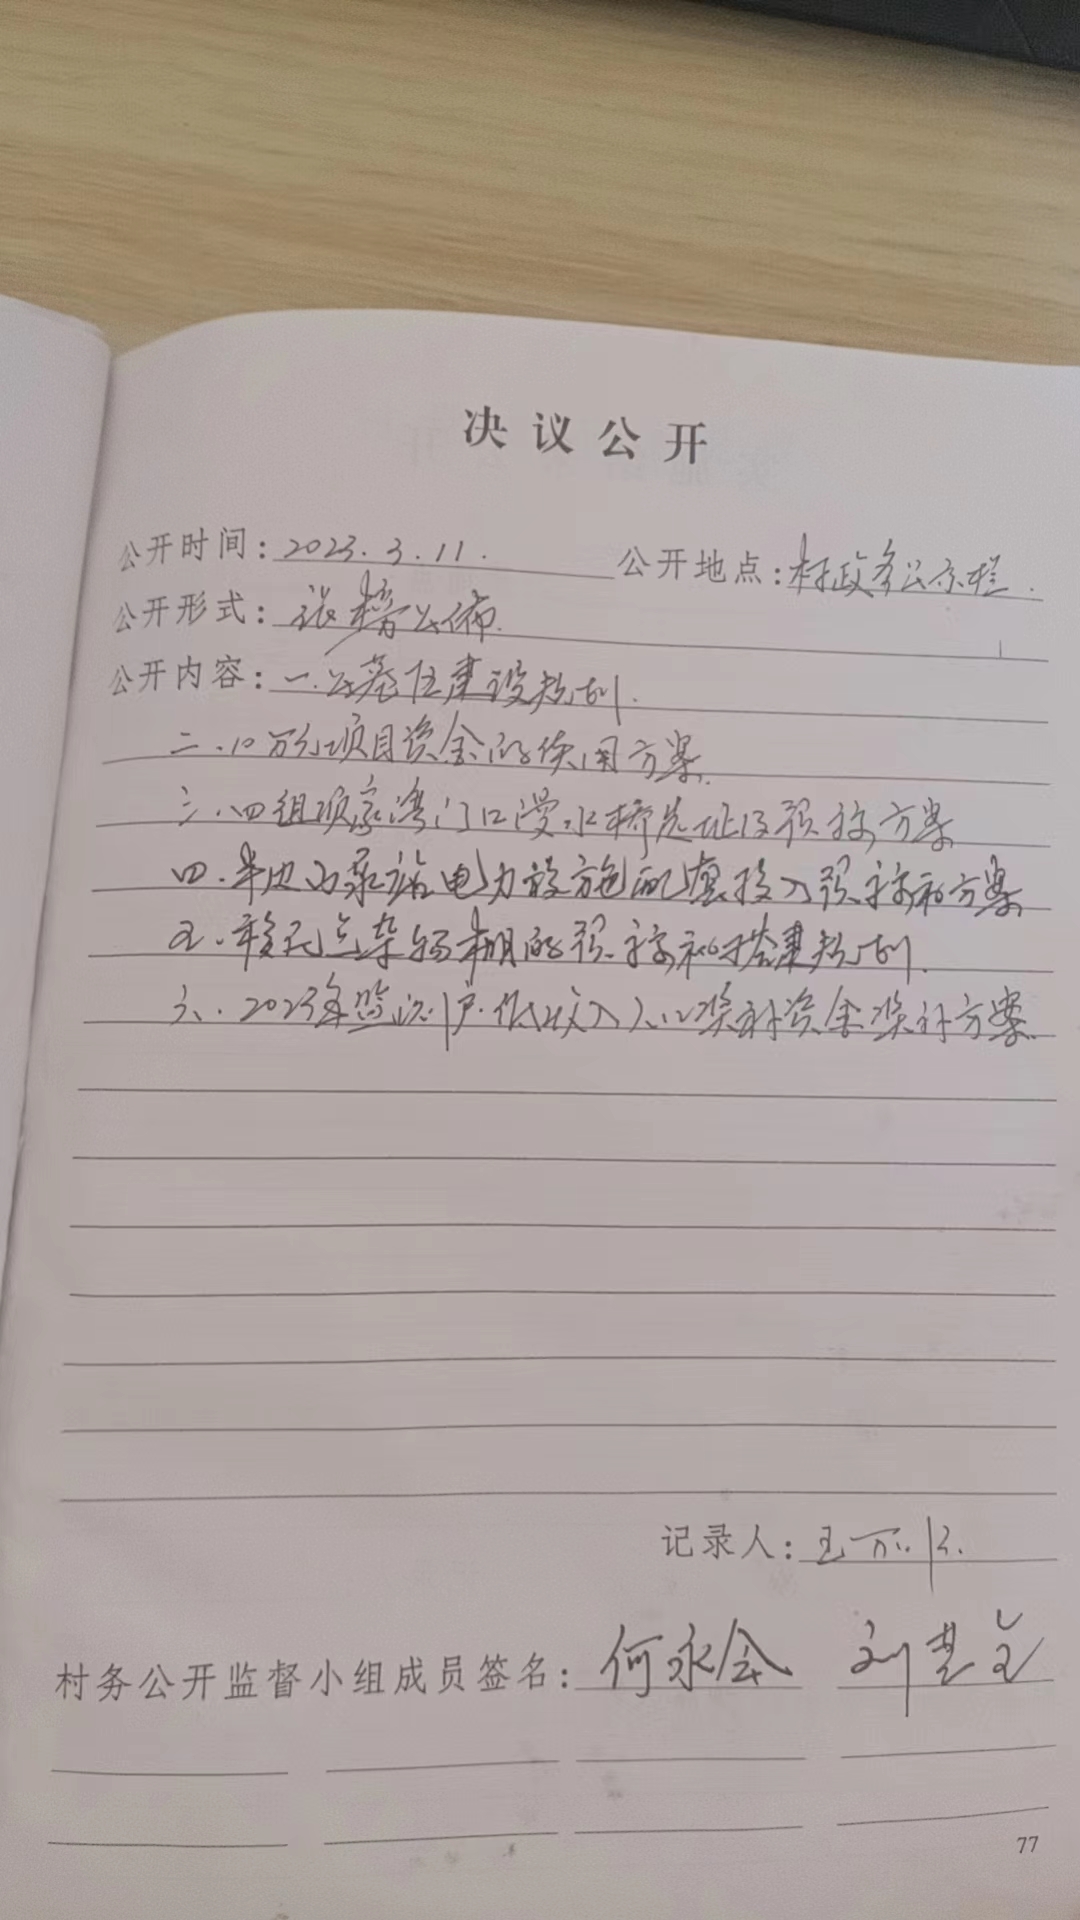 决议公开
公开时间:2023.3.11. 公开地点:村政务公示栏.
公开形式:张榜公佈.
公开内容:一.公墓区建设规划.
二.10万元项目资金的使用方案.
三.四组顾家湾门口漫水桥选址及预算方案
四.半边山泵站电力设施配套投入预算和方案
五.移民点杂物棚的预算和搭建规划.
六.2023年监测户.低收入人口奖补资金奖补方案.
记录人:王
村务公开监督小组成员签名:何永会 刘
77